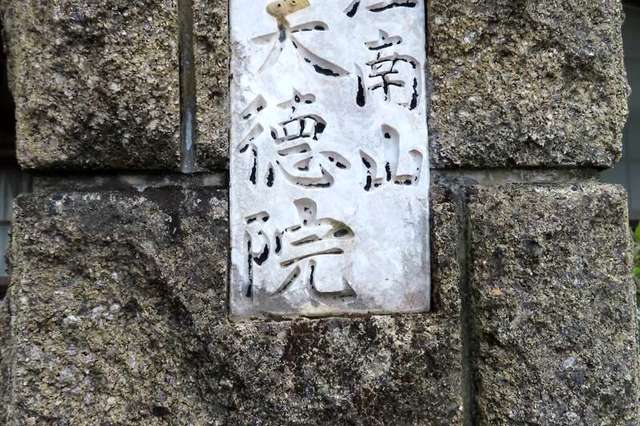 南山
天徳院